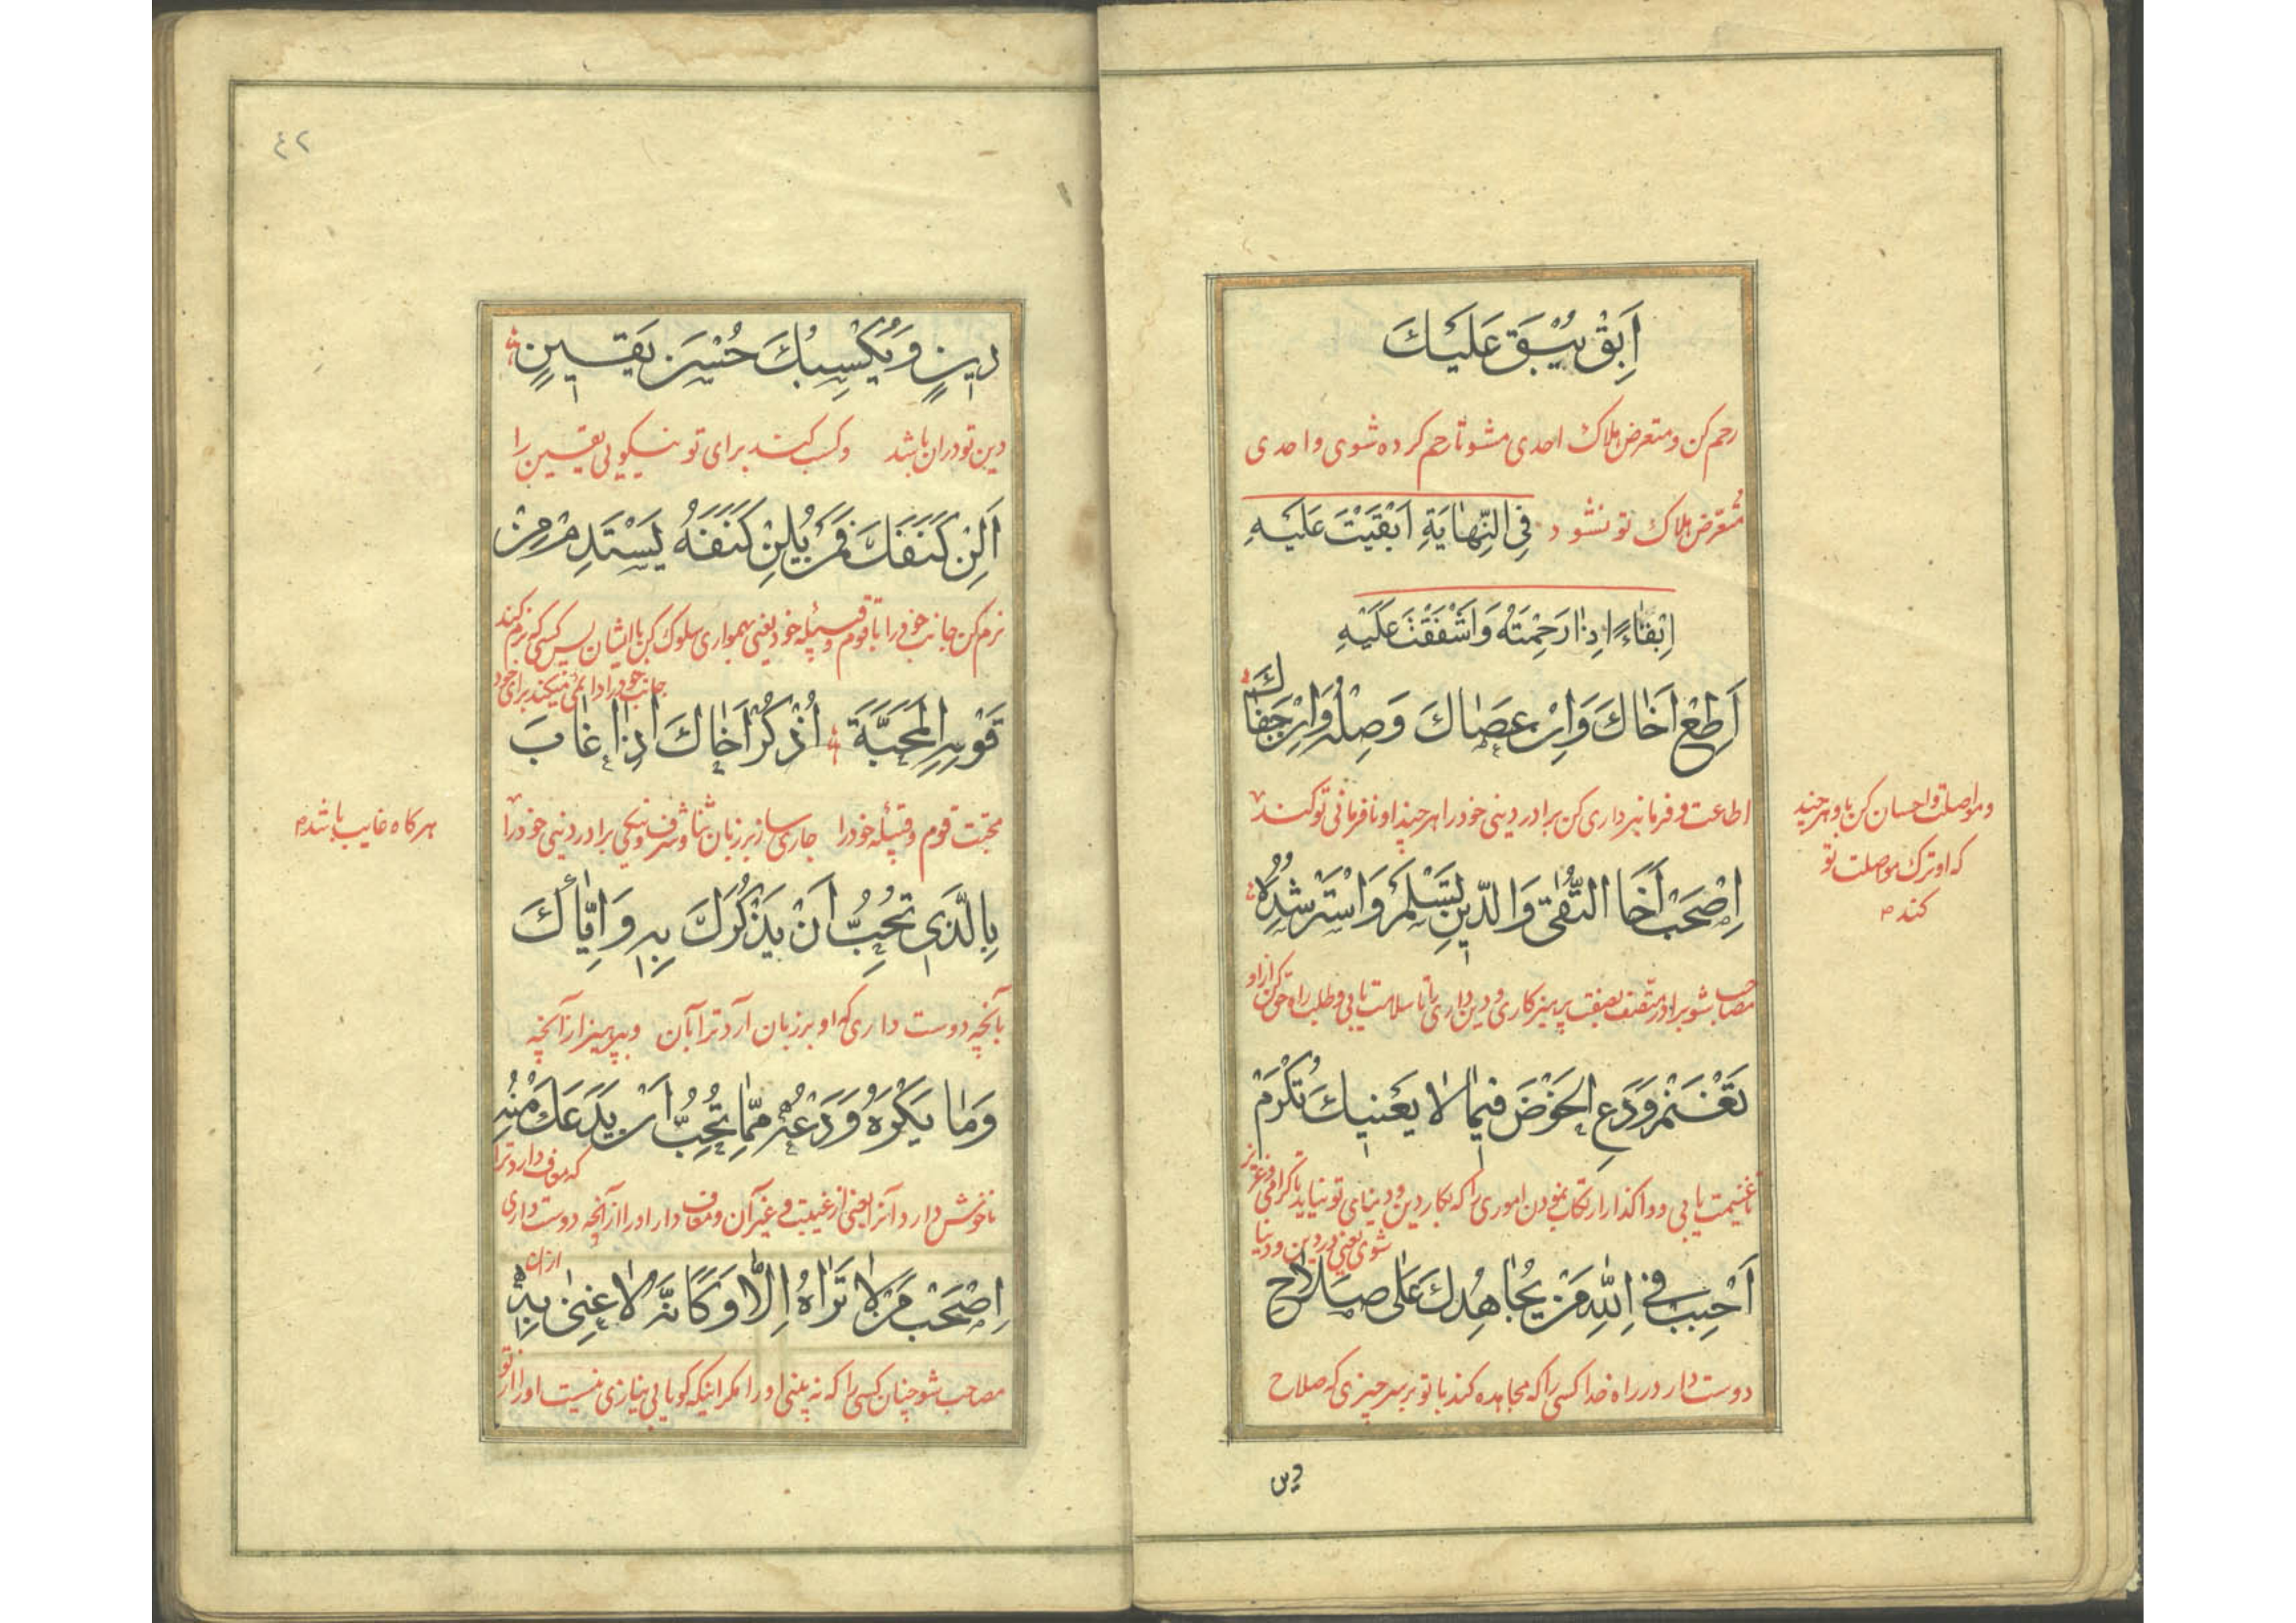 اَبِقْ يُبْقَ عَلَيْكَ
رحم کن و متعرض هلاک احدی مشو تا رحم کرده شوی و احدی
متعرض هلاک تو نشود فِی النِّهایَةِ اَبْقَیْتَ عَلَیْهِ
اِبْقاءً اِذا رَحِمْتَهُ وَاَشْفَقْتَ عَلَيْهِ
اَطِعْ اَخاكَ وَاِنْ عَصاكَ وَصِلْهُ وَاِنْ جَفاكَ
اطاعت و فرمانبرداری کن برادر دینی خود را هر چند او نافرمانی تو کند
و مواصلت و احسان کن باو هر چند
که او ترک مواصلت تو
کند
اِصْحَبْ اَخَا التُّقى وَالدّينِ تَسْلَمْ وَاسْتَرْشِدْهُ
مصاحب شو برادر متصف بصفت پرهیزکاری و دین داری را تا سلامت یابی و طلب راه حق کن از او
تَغْنَمْ وَدَعِ الْخَوْضَ فيما لا يَعْنيكَ تُكْرَمْ
تا غنیمت یابی و واگذار ارتکاب نمودن اموری را که بکار دین و دنیای تو نیاید تا گرامی و عزیز
شوی یعنی در دین و دنیا
اَحْبِبْ فِي اللّهِ مَنْ يُجاهِدُكَ عَلى صَلاحِ
دوست دار در راه خدا کسی را که مجاهده کند با تو بر سر چیزی که صلاح
دین
٤٢
دينٍ وَيُكْسِبُكَ حُسْنَ يَقينٍ
دین تو در ان باشد و کسب کند برای تو نیکویی یقین را
اَلِنْ كَنَفَكَ فَمَنْ يُلِنْ كَنَفَهُ يَسْتَدِمْ مِنْ
نرم کن جانب خود را با قوم و قبیله خود یعنی بهمواری سلوک کن با ایشان پس کسی که نرم کند
جانب خود را دائمی میکند برای خود
قَوْمِهِ الْمَحَبَّةَ اُذْكُرْ اَخاكَ اِذا غابَ
محبت قوم و قبیله خود را جاری ساز بر زبان ثنا و شرف و نیکی برادر دینی خود را
هر کاه غایب باشد
بِالَّذي تُحِبُّ اَنْ يَذْكُرَكَ بِهِ وَاِيّاكَ
بآنچه دوست داری که او بر زبان آرد ترا بآن و بپرهیز از آنچه
وَما يَكْرَهُ وَدَعْهُ مِمّا تُحِبُّ اَنْ يَدَعَكَ مِنْهُ
که معاف دارد ترا
ناخوش دارد آنرا یعنی از غیبت و غیر آن و معاف دار او را از آنچه دوست داری
از ان
اِصْحَبْ مَنْ لا تَراهُ اِلّا وَكَاَنَّهُ لا غِنى بِهِ
مصاحب شو چنان کسی را که نه بینی او را مکر اینکه کویا بی نیازی نیست او را از تو